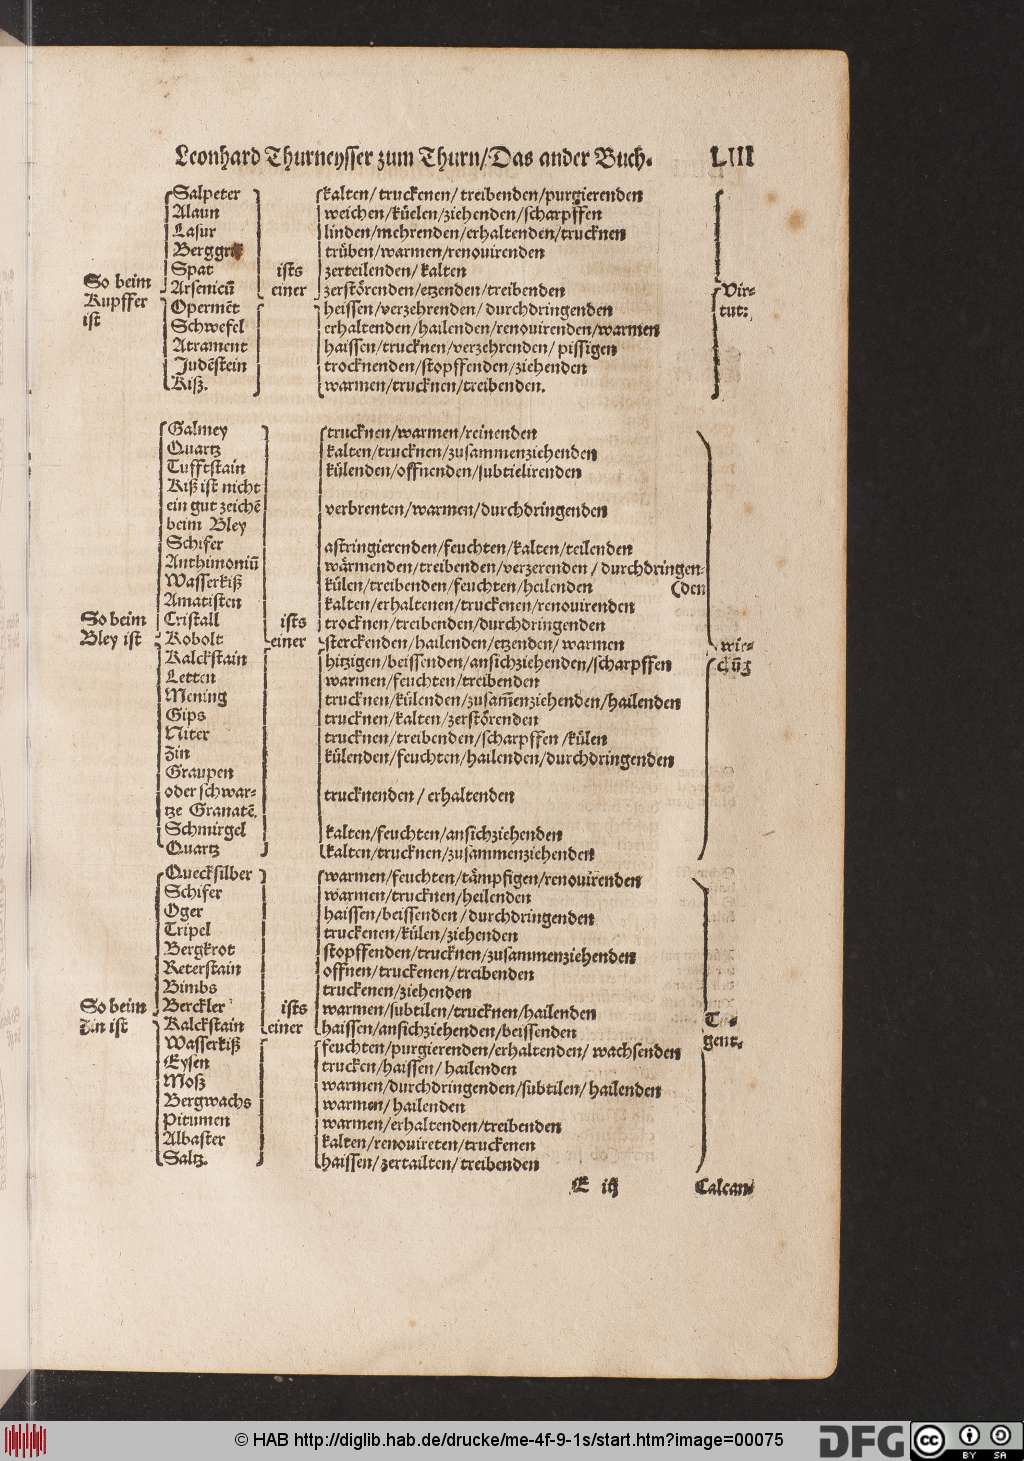 Leonhard Thurneysser zum Thurn/Das ander Buch. LIII
So beim
Kupffer
ist
Salpeter
Alaun
Lasur
Spat
Arsenicū
Opermēt
Schwefel
Atrament
Judēstein
Kiß.
ists
einer
kalten/ truckenen/ treibenden/purgierenden
weichen/kůelen/ziehenden/scharpffen
linden/mehrenden/erhaltenden/trucknen
trüben/warmen/renouirenden
zerteilenden/ kalten
zerstörenden/etzenden/treibenden
heissen/verzehrenden/ durchdringenden
erhaltenden/hailenden/renouirenden/warmen
haissen/trucknen/verzehrenden/ pissigen
trocknenden/stopffenden/ziehenden
warmen/trucknen/treibenden.
Vir-
tut:
So beim
Bley ist
Galmey
Quartz
Tufftstain
Kiß ist nicht
ein gut zeichē
beim Bley
Schifer
Anthimoniū
Wasserkiß
Amatisten
Cristall
Kobolt
Kalckstain
Letten
Mening
Gips
Niter
Zin
Graupen
oder schwar-
tze Granatē.
Schmirgel
Quartz
ists
einer
trucknen/warmen/reinenden
kalten/trucknen/zusammenziehenden
külenden/offnenden/subtielirenden
verbrenten/warmen/durchdringenden
astringierenden/feuchten/kalten/teilenden
wärmenden/treibenden/verzerenden / durchdringen-
külen/treibenden/feuchten/heilenden (den
kalten/erhaltenen/truckenen/renouirenden
trocknen/treibenden/durchdringenden
sterckenden/hailenden/etzenden/ warmen
hitzigen/beissenden/ansichziehenden/scharpffen
warmen/feuchten/treibenden
trucknen/külenden/zusam̄enziehenden/hailenden
trucknen/kalten/zerstörenden
trucknen/treibenden/scharpffen /külen
külenden/feuchten/hailenden/durchdringenden
trucknenden/ erhaltenden
kalten/feuchten/ansichziehenden
kalten/trucknen/zusammenziehenden
wir-
ckūg
So beim
Zin ist
Quecksilber
Schifer
Oger
Tripel
Bergkrot
Reterstain
Bimbs
Berckler
Kalckstain
Wasserkiß
Eysen
Moß
Bergwachs
Pitumen
Albaster
Saltz.
ists
einer
warmen/feuchten/tämpfigen/renouirenden
warmen/trucknen/heilenden
haissen/beissenden /durchdringenden
truckenen/külen/ziehenden
stopffenden/trucknen/zusammenziehenden
offnen/truckenen/treibenden
truckenen/ziehenden
warmen/subtilen/trucknen/hailenden
haissen/ansichziehenden/beissenden
feuchten/purgierenden/erhaltenden/ wachsenden
trucken/haissen/ hailenden
warmen/durchdringenden/subtilen/ hailenden
warmen/ hailenden
warmen/erhaltenden/treibenden
kalten/renouireten/truckenen
haissen/zertailten/treibenden
Tu-
gent.
E iij Calcan-
© HAB http://diglib.hab.de/drucke/me-4f-9-1s/start.htm?image=00075
DFG
cc BY SA